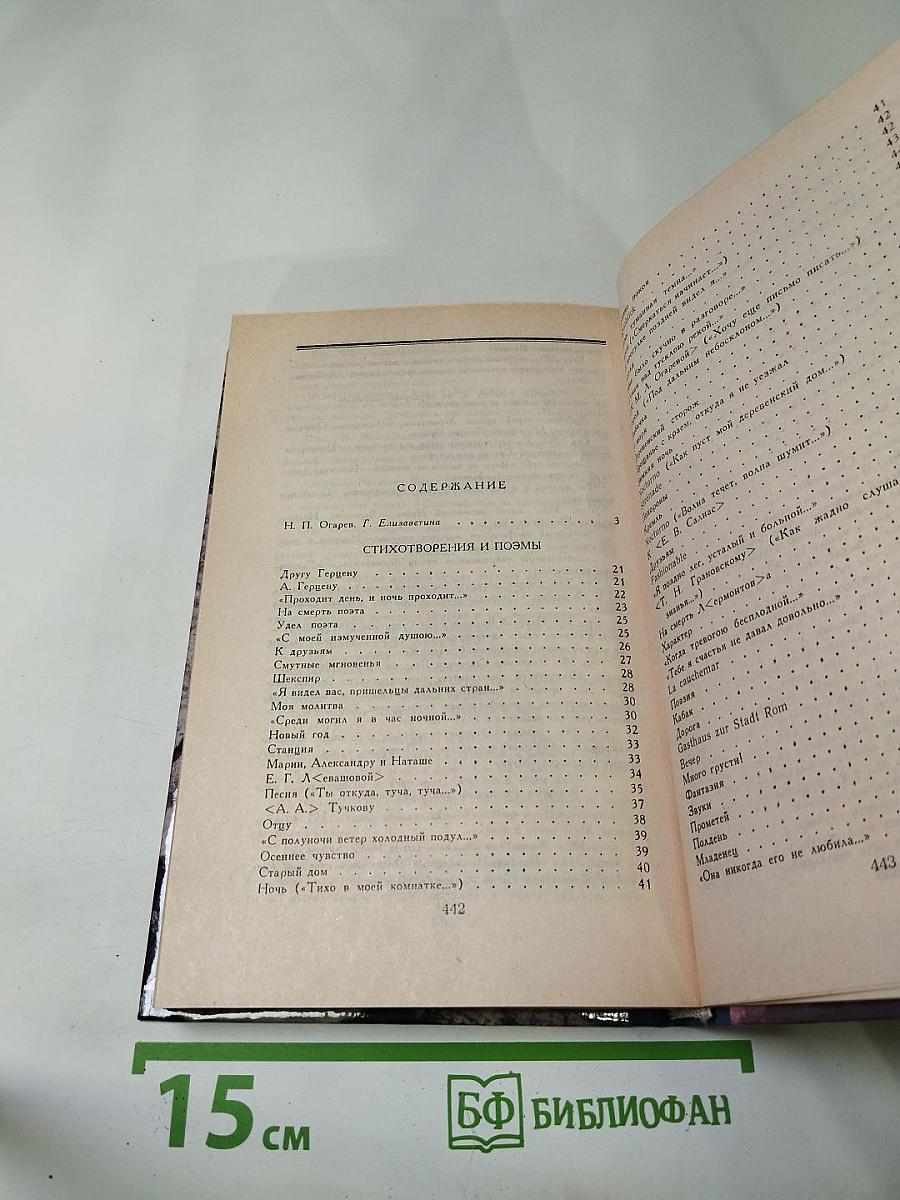 СОДЕРЖАНИЕ
Н. П. Огарев. Г. Елизаветина . . . . . . . . . . . 3
СТИХОТВОРЕНИЯ И ПОЭМЫ
Другу Герцену 21
А. Герцену 21
«Проходит день, и ночь проходит...» 22
На смерть поэта 23
Удел поэта 25
«С моей измученной душою...» 25
К друзьям 26
Смутные мгновенья 27
Шекспир 28
«Я видел вас, пришельцы дальних стран...» 28
Моя молитва 30
«Среди могил я в час ночной...» 30
Новый год 32
Станция 33
Марии, Александру и Наташе 33
Е. Г. Л<евашовой> 34
Песня («Ты откуда, туча, туча...») 35
<А. А.> Тучкову 37
Отцу 38
«С полуночи ветер холодный подул...» 39
Осеннее чувство 39
Старый дом 40
Ночь («Тихо в моей комнатке...») 41
442
41
42
42
43
туманная темпа...»
(«Смеркаться начинает...»)
поздней видел я...»
было скучно в разговоре...»
над тусклою рекой...»
М. Л. Огаревой> («Хочу еще письмо писать...»)
(«Под дальним небосклоном...»)
сторож
с краем, откуда я не уезжал
ночь
Nocturno («Как пуст мой деревенский дом...»)
Serenade
Кремль
Nocturno («Волна течет, волна шумит...»)
К <Е. В. Салиас>
Друзьям
Fashionable
«Я поздно лег, усталый и больной...»
<Т. Н. Грановскому> («Как жадно слуша
знанья...»)
На смерть Л<ермонтов>а
Характер
«Когда тревогою бесплодной...»
«Тебе я счастья не давал довольно...»
La cauchemar
Поэзия
Кабак
Дорога
Gasthaus zur Stadt Rom
Вечер
Много грусти!
Фантазия
Звуки
Прометей
Полдень
Младенец
«Она никогда его не любила...»
443
15 см
БФ БИБЛИОФАН